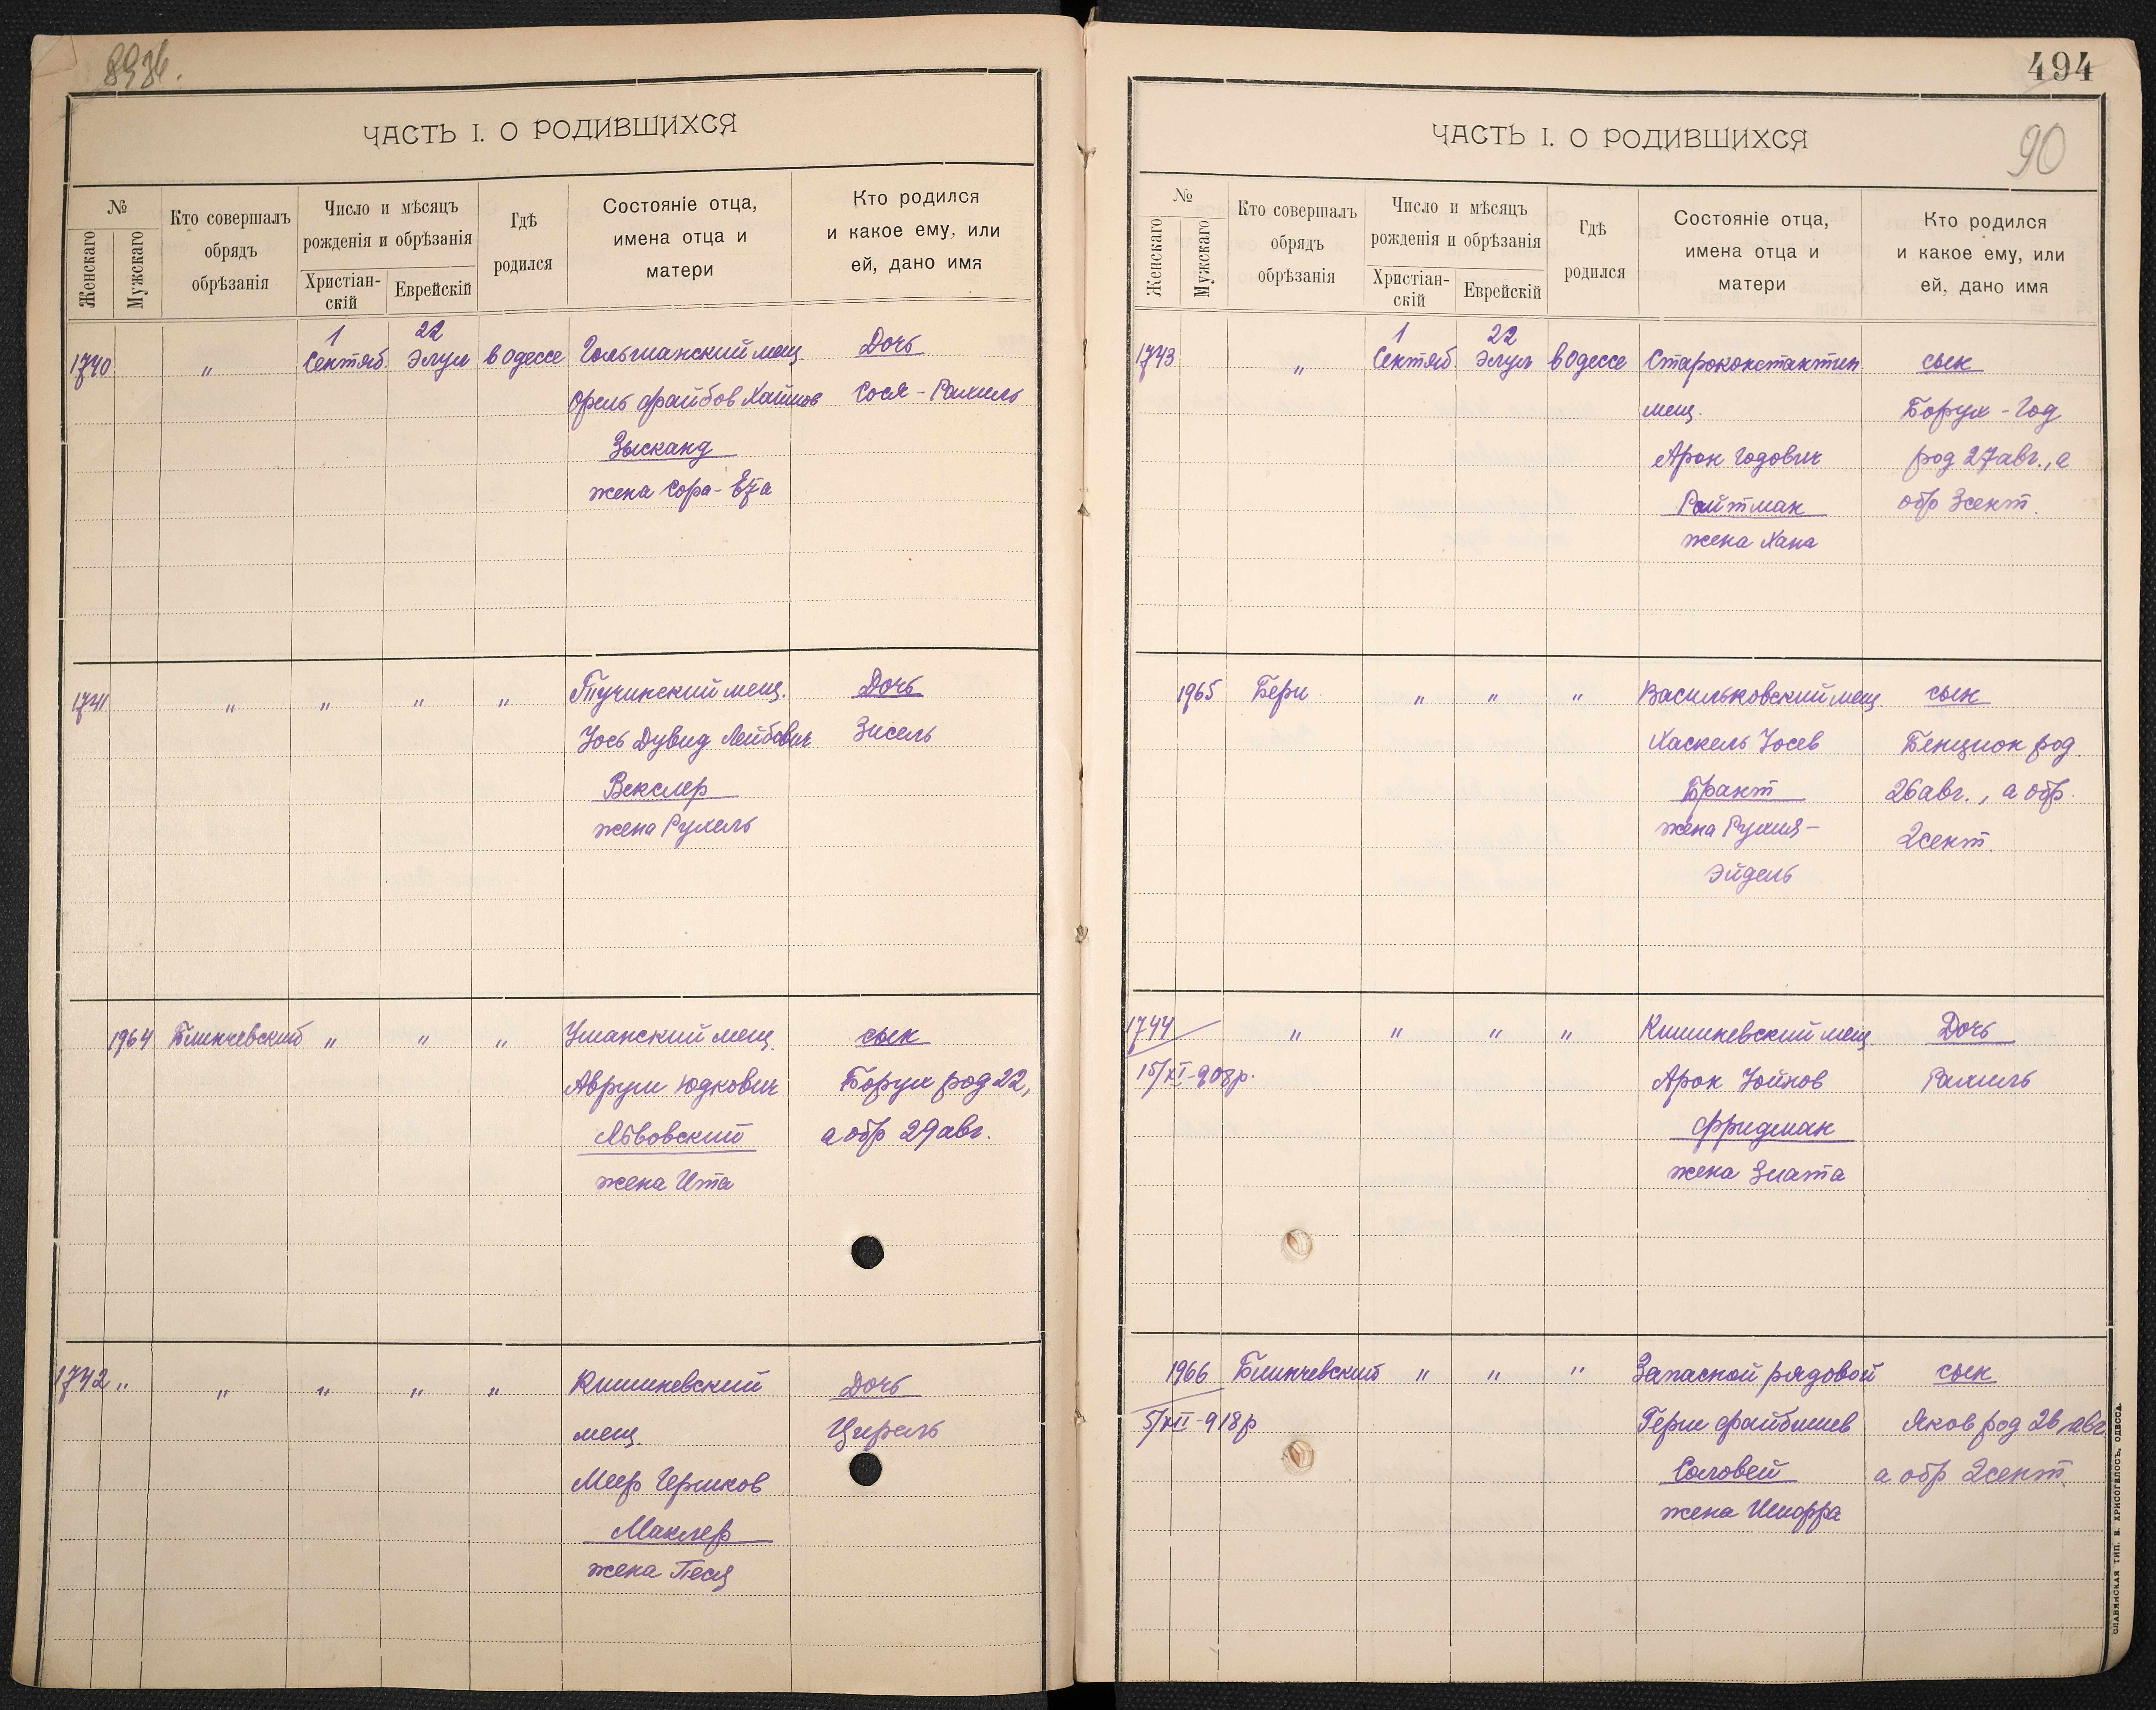 494
90
ЧАСТЬ I. О РОДИВШИХСЯ
№
Женскаго
Мужскаго
Кто совершалъ
обрядъ
обрѣзанія
Число и мѣсяцъ
рожденія и обрѣзанія
Христіан-
скій
Еврейскій
Гдѣ
родился
Состояніе отца,
имена отца и
матери
Кто родился
и какое ему, или
ей, дано имя
1740
"
1
Сентяб.
22
Элул
в Одессе
Гольшанский мещ.
Орель Файбов Хаимов
Зысканд
жена Сора-
Дочь
Сося-Рахиль
1741
" " " "
Тучинский мещ.
Іось Дувид Лейбович
Векслер
жена Рухель
Дочь
Зисель
1964 Блинчевский " " "
Уманский мещ.
Аврум Юдкович
Львовский
жена Ита
сын
Борух род 22,
а обр 29 авг.
1742 " " " " "
Кишиневский
мещ.
Меер Гершков
Маклер
жена Песя
Дочь
Цираль
ЧАСТЬ I. О РОДИВШИХСЯ
№
Женскаго
Мужскаго
Кто совершалъ
обрядъ
обрѣзанія
Число и мѣсяцъ
рожденія и обрѣзанія
Христіан-
скій
Еврейскій
Гдѣ
родился
Состояніе отца,
имена отца и
матери
Кто родился
и какое ему, или
ей, дано имя
1743
"
1
Сентяб.
22
Элул
в Одессе
Староконстантин
мещ.
Арон Годович
Ройтман
жена Хана
сын
Борух-Год
род 27 авг., а
обр 3 сент.
1965 Бери " " "
Васильковский мещ.
Хаскель Іосев
Брант
жена Рухля-
Эйдель
сын
Бенцион род
26 авг., а обр.
2 сент.
1744 " " " "
15/XI-908р.
Кишиневский мещ.
Арон Іойнов
Фридман
жена Злата
Дочь
Рахиль
1966 Блинчевский " " "
5/XII-918р
Запасной рядовой
Герш Файбишев
Соловей
жена
сын
Яков род 26 авг.
а обр 2 сент.
СЛАВЯНСКАЯ ТИП. Н. ХРИСОГЕЛОСЪ, ОДЕССА.